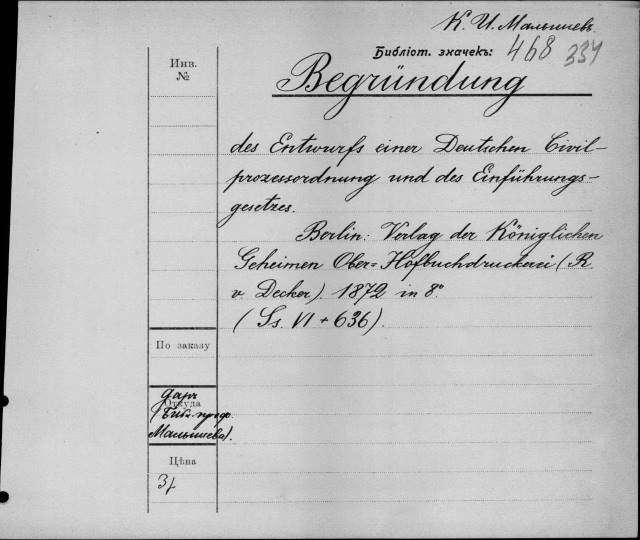 К. И. Малышевъ.
Библіот. значекъ: 468 334
Инв.
№
Begründung
des Entwurfs einer Deutschen Civil-
prozessordnung und des Einführungs-
gesetzes.
Berlin: Verlag der Königlichen
Geheimen Ober-Hofbuchdruckerei (R.
v. Decker). 1872 in 8°.
(Ss. VI + 636).
По заказу
Откуда
даръ
(Библ. проф.
Малышева).
Цѣна
3р